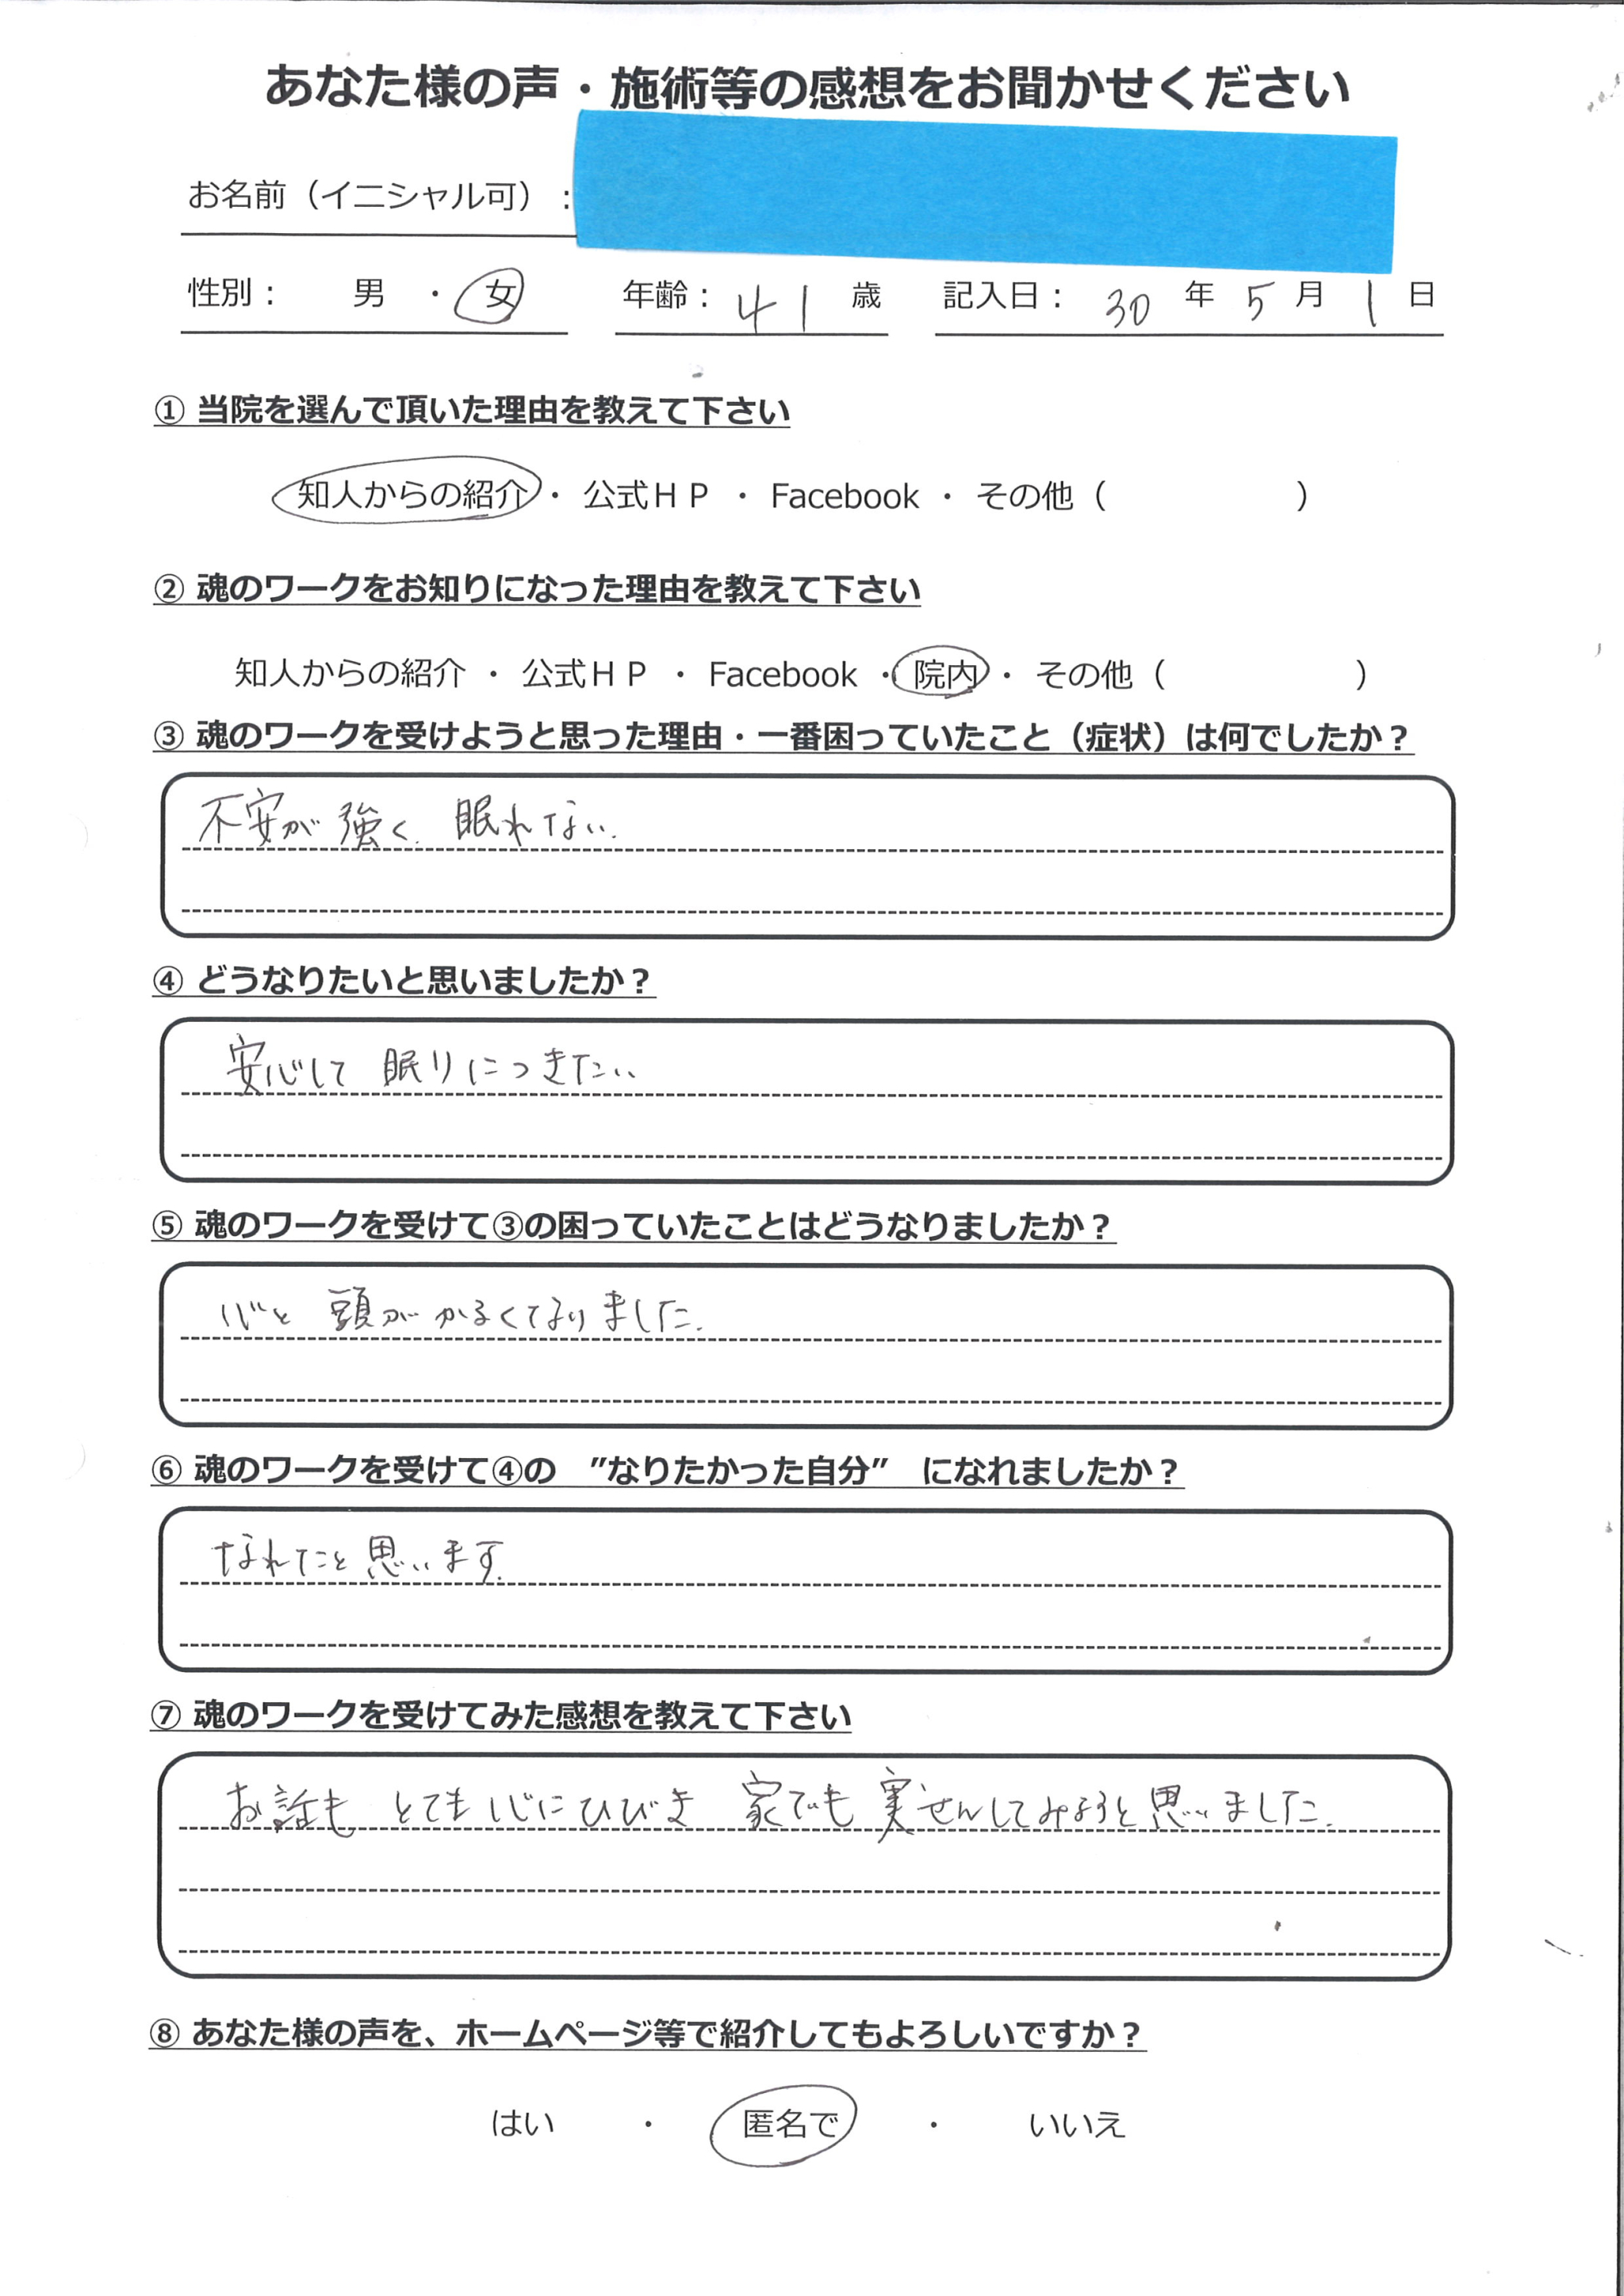 あなた様の声・施術等の感想をお聞かせください
お名前（イニシャル可）：
性別： 男 ・ 女 年齢： 41 歳 記入日： 30 年 5 月 1 日
① 当院を選んで頂いた理由を教えて下さい
知人からの紹介 ・ 公式ＨＰ ・ Facebook ・ その他（ ）
② 魂のワークをお知りになった理由を教えて下さい
知人からの紹介 ・ 公式ＨＰ ・ Facebook ・ 院内 ・ その他（ ）
③ 魂のワークを受けようと思った理由・一番困っていたこと（症状）は何でしたか？
不安が強く、眠れない。
④ どうなりたいと思いましたか？
安心して眠りにつきたい
⑤ 魂のワークを受けて③の困っていたことはどうなりましたか？
心と頭がかるくなりました。
⑥ 魂のワークを受けて④の ”なりたかった自分” になれましたか？
なれたと思います。
⑦ 魂のワークを受けてみた感想を教えて下さい
お話も とても心にひびき 家でも実せんしてみようと思いました。
⑧ あなた様の声を、ホームページ等で紹介してもよろしいですか？
はい ・ 匿名で ・ いいえ